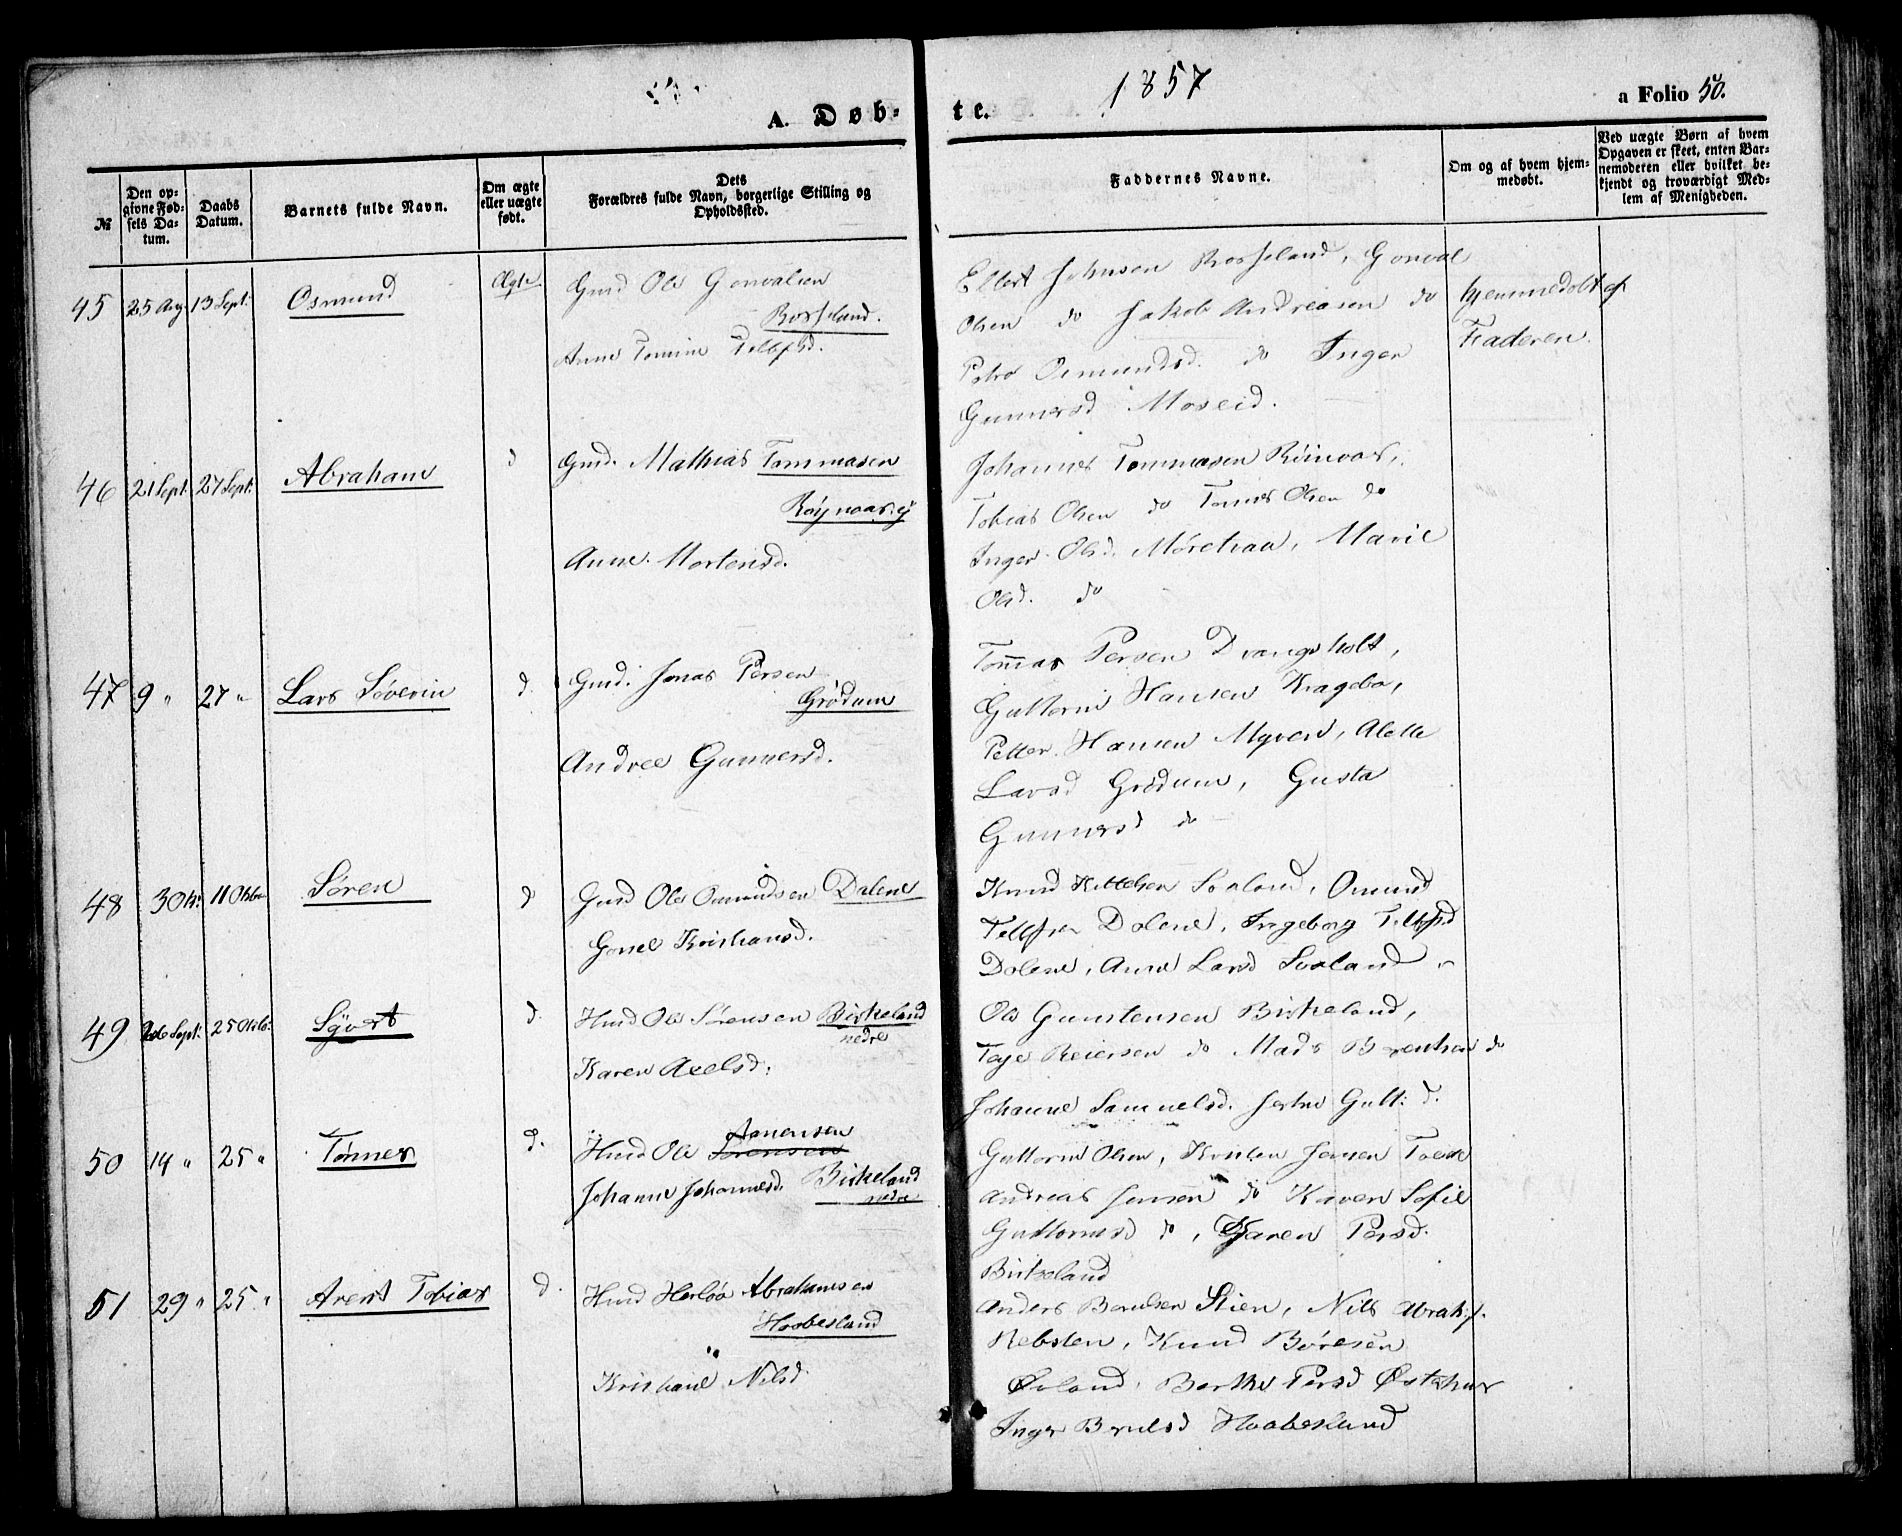 1857
A. Døb-
te.
a Folio 50.
№
Den opgivne Fødsels Datum.
Daabs Datum.
Barnets fulde Navn.
Om ægte eller uægte født.
Dets Forældres fulde Navn, borgerlige Stilling og Opholdssted.
Faddernes Navne.
Om og af hvem hjemmedøbt.
Ved uægte Børn af hvem Opgaven er skeet, enten Barnemoderen eller hvilket bekjendt og troværdigt Medlem af Menigheden.
45 25 Aug 13 Sept: Osmund Ægte
Gmd Ole Gonvalsen
Rosseland.
Anne Tomine Tellefsd.
Ellert Johnsen Rosseland, Gonval
Olsen do Jakob Andreasen do
Petra Osmundsd. do Inger
Gunnersd Moseid.
hjemmedøbt af
Faderen.
46 21 Sept. 27 Sept: Abraham d
Gmd. Mathias Tommasen
Røynaas.
Anne Mortensd.
Johannes Tommasen Røinaas,
Tobias Olsen do Tomas Olsen do
Inger Olsd. Møretraa, Marie
Olsd. do
47 9 " 27 " Lars Søverin d.
Gmd. Jonas Persen
Grødum
Andree Gunnersd.
Tommas Persen Drangsholt,
Guttorm Hansen Kragebo,
Petter Hansen Myren, Alette
Larsd Grødum, Gusta
Gunnersd do
48 3 Okt: 11 Oktbr Søren d
Gmd Ole Osmundsen Dolene
Gonel Kristiansd.
Knud Kittelsen Soland, Osmund
Tellefsen Dolene, Ingeborg Tellefsd
Dolene, Anne Larsd Soland
49 Sept: 25 Oktb: Syvert d.
Husd Ole Sørensen Birkeland
nedre
Karen Axelsd.
Ole Gunstensen Birkeland,
Taje Reiersen do Mads Berentsen do
Johanne Samuelsd. Gutt: d.
50 14 " 25 " Tønnes d.
Aanensen
Husd Ole Sørensen
Johanne Johannesd. Birkeland
nedre
Guttorm Olsen, Kristen Jensen
Andreas Jensen do Karen Sofie
Guttormsd do, Karen Persd.
Birkeland
51 29 " 25 " Arent Tobias d.
Husd Herløv Abrahamsen
Haabesland
Kristiane Nilsd.
Anders Berulsen Stien, Nils Abrah:s.
Rebsten, Knud Børesen
Øvland, Berthe Persd
Inger Berulsd Haabesland